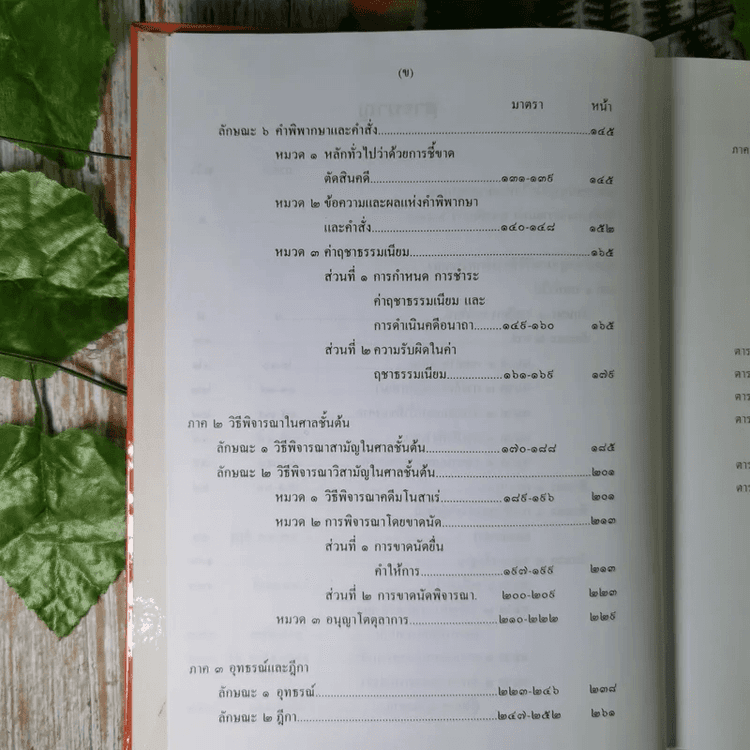 (ข)
มาตรา หน้า
ลักษณะ ๖ คำพิพากษาและคำสั่ง.....................................................๑๔๕
หมวด ๑ หลักทั่วไปว่าด้วยการชี้ขาด
ตัดสินคดี..........................๑๓๑-๑๓๙ ๑๔๕
หมวด ๒ ข้อความและผลแห่งคำพิพากษา
และคำสั่ง..........................๑๔๐-๑๔๘ ๑๕๒
หมวด ๓ ค่าฤชาธรรมเนียม..........................................๑๖๕
ส่วนที่ ๑ การกำหนด การชำระ
ค่าฤชาธรรมเนียม และ
การดำเนินคดีอนาถา........๑๔๙-๑๖๐ ๑๖๕
ส่วนที่ ๒ ความรับผิดในค่า
ฤชาธรรมเนียม..............๑๖๑-๑๖๙ ๑๗๙
ภาค ๒ วิธีพิจารณาในศาลชั้นต้น
ลักษณะ ๑ วิธีพิจารณาสามัญในศาลชั้นต้น...................๑๗๐-๑๘๘ ๑๘๕
ลักษณะ ๒ วิธีพิจารณาวิสามัญในศาลชั้นต้น.......................................๒๐๑
หมวด ๑ วิธีพิจารณาคดีมโนสาเร่...............๑๘๙-๑๙๖ ๒๐๑
หมวด ๒ การพิจารณาโดยขาดนัด.....................................๒๑๓
ส่วนที่ ๑ การขาดนัดยื่น
คำให้การ.....................๑๙๗-๑๙๙ ๒๑๓
ส่วนที่ ๒ การขาดนัดพิจารณา. ๒๐๐-๒๐๙ ๒๒๓
หมวด ๓ อนุญาโตตุลาการ......................๒๑๐-๒๒๒ ๒๒๙
ภาค ๓ อุทธรณ์และฎีกา
ลักษณะ ๑ อุทธรณ์..............................................๒๒๓-๒๔๖ ๒๓๘
ลักษณะ ๒ ฎีกา..................................................๒๔๗-๒๕๒ ๒๖๑
ภาค